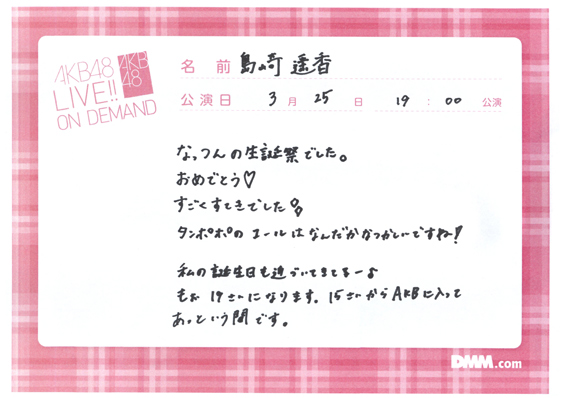 AKB48
LIVE!!
ON DEMAND
AKB
48
名 前 島崎 遥香
公演日 3 月 25 日 19 : 00 公演
なっつんの生誕祭でした。
おめでとう♡
すごくすてきでした
タンポポの エールはなんだかなつかしいですね!
私の誕生日も近づいてきてるーよ
もぉ 19さいになります。15さいからAKBに入って
あっという間です。
DMM.com